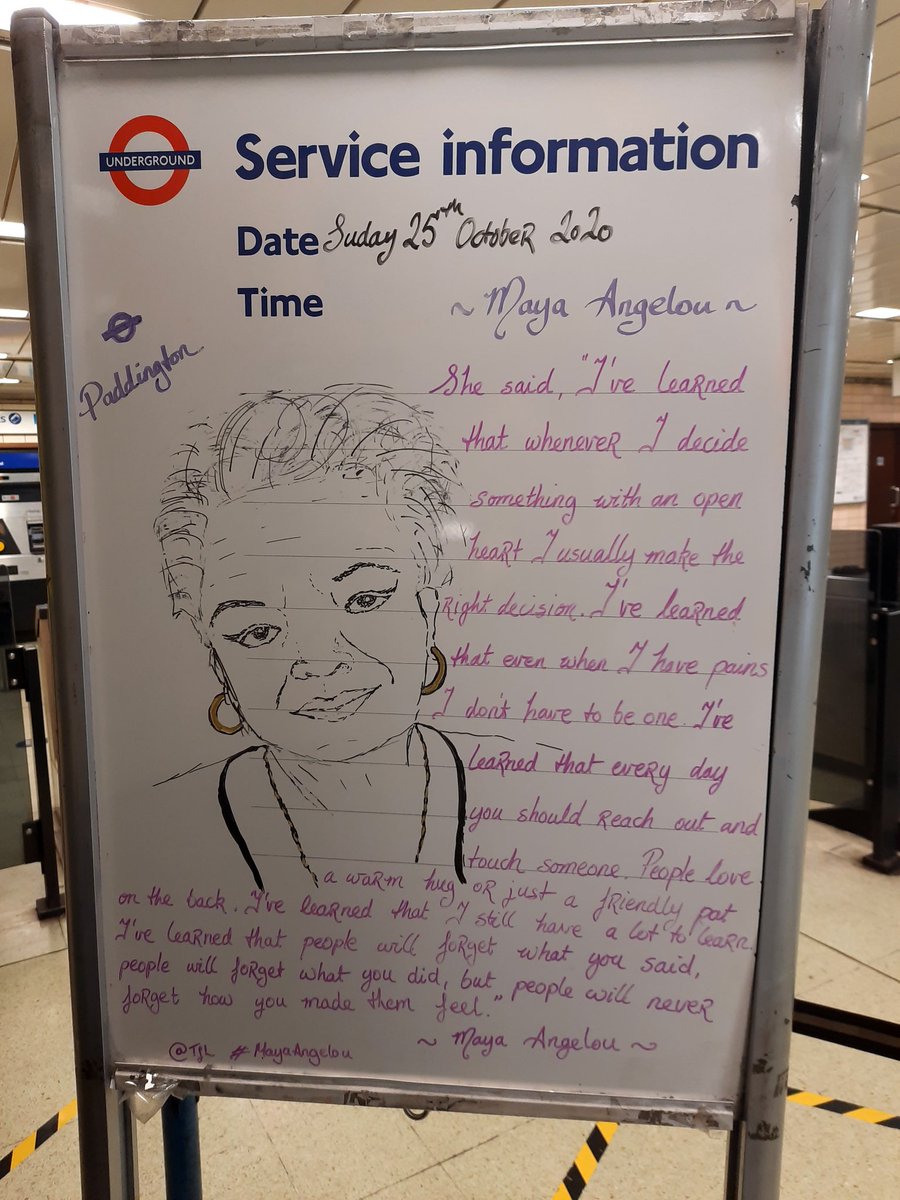 UNDERGROUND
Service information
Date Suday 25th October 2020
Time
Paddington
~ Maya Angelou ~
She said, "I've learned
that whenever I decide
something with an open
heart I usually make the
right decision. I've learned
that even when I have pains
I don't have to be one. I've
learned that every day
you should reach out and
touch someone. People love
a warm hug or just a friendly pat
on the back. I've learned that I still have a lot to learn.
I've learned that people will forget what you said,
people will forget what you did, but people will never
forget how you made them feel."
~ Maya Angelou ~
@TfL #MayaAngelou